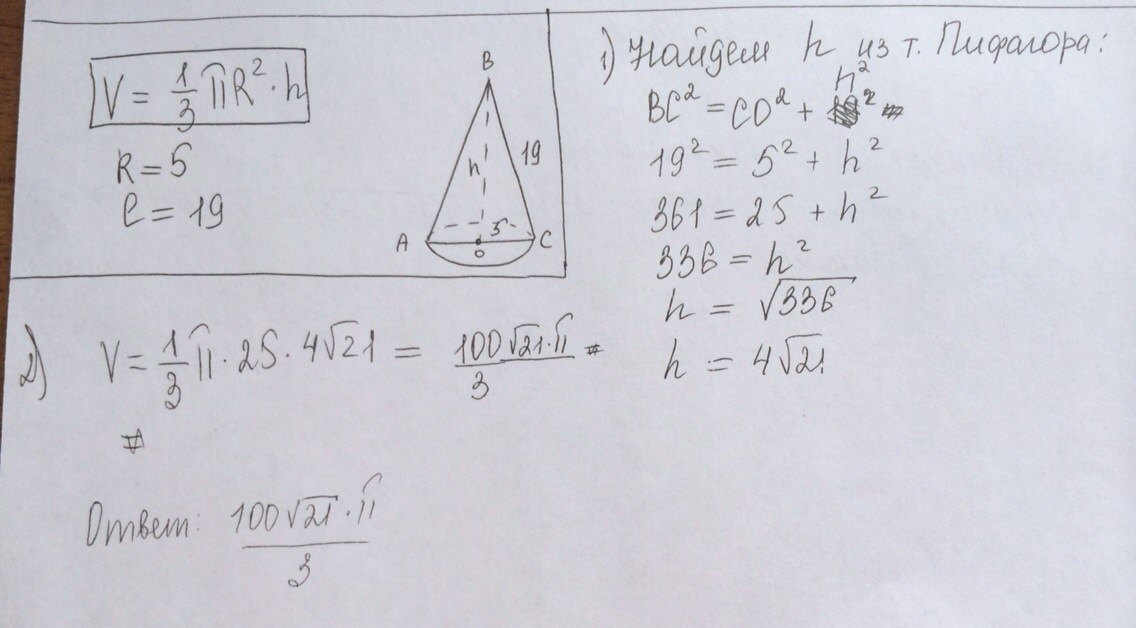 V = 1/3 πR² · h
R = 5
ℓ = 19
B
h
19
5
A
O
C
1) Найдем h из т. Пифагора:
BC² = CO² + h²
19² = 5² + h²
361 = 25 + h²
336 = h²
h = √336
h = 4√21
2) V = 1/3 π · 25 · 4√21 = 100√21·π/3
Ответ: 100√21·π/3